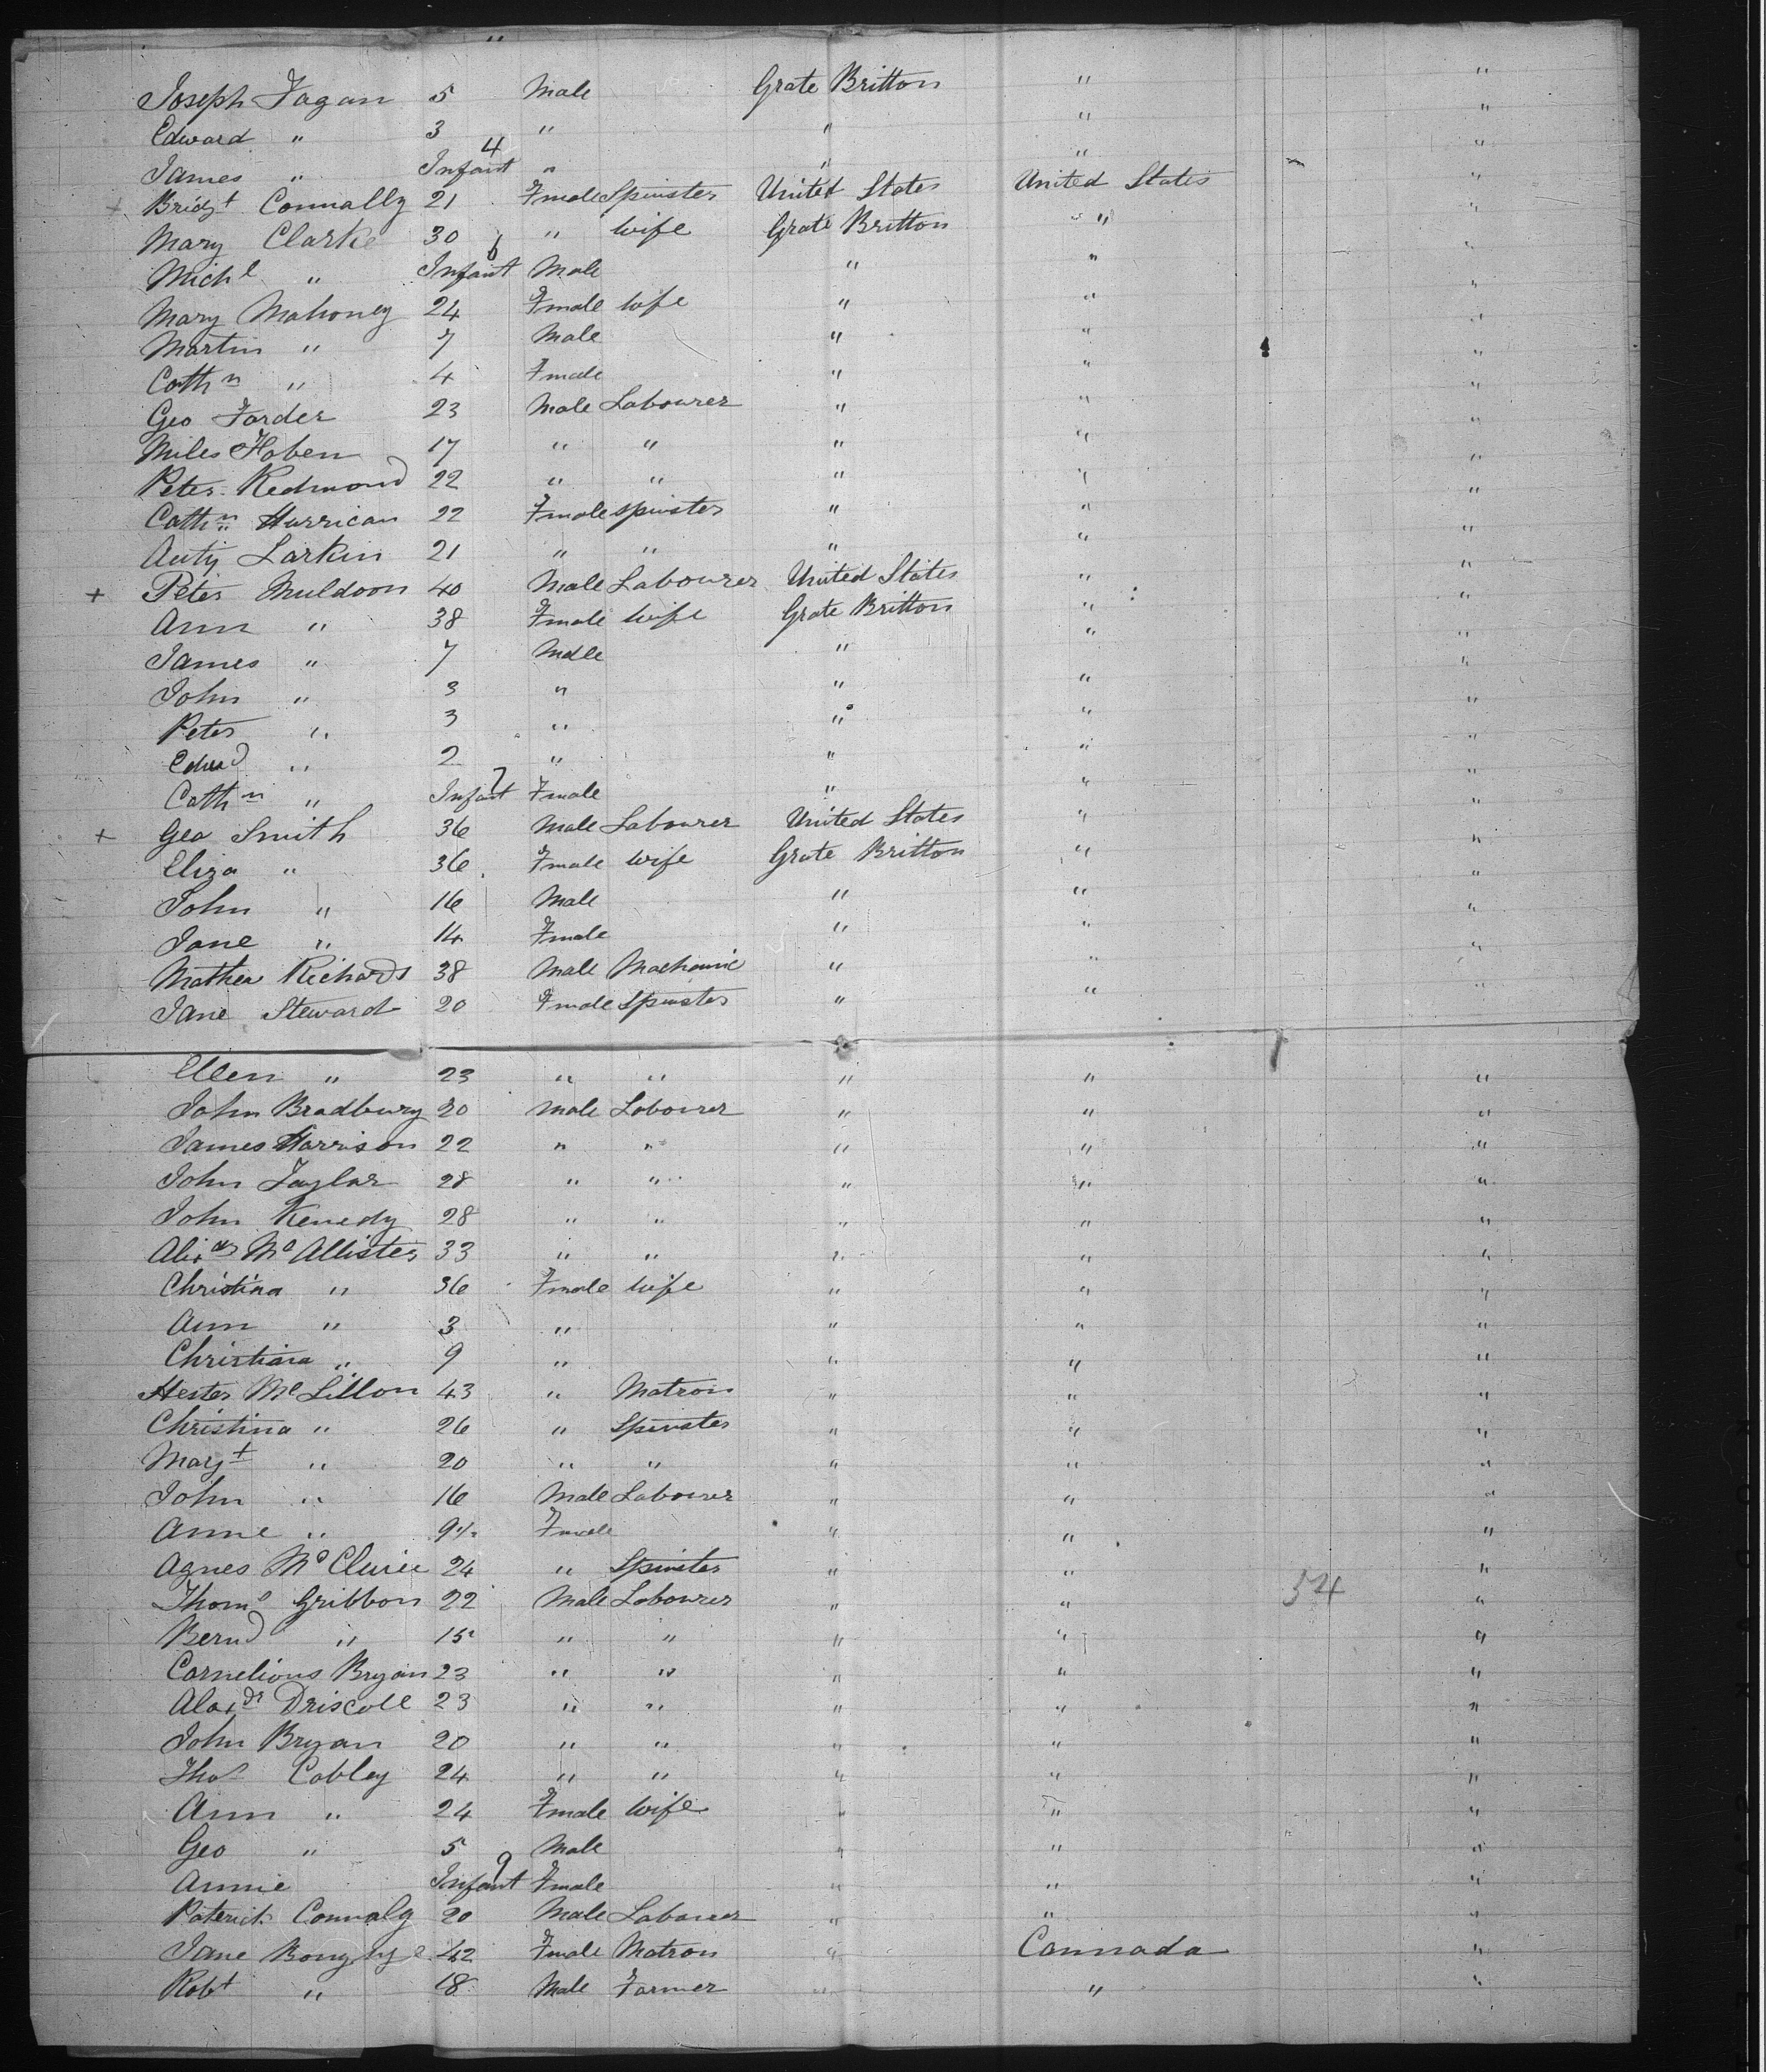 "
Joseph Fagan 5 Male Grate Britton " "
Edward " 3 " " " "
James " Infant 4 " " " "
+ Bridgt Connally 21 Fmale Spinster United States United States "
Mary Clarke 30 " wife Grate Britton " "
Michl " Infant 6 Male " " "
Mary Mahoney 24 Fmale wife " " "
Martin " 7 Male " " "
Cathn " 4 Fmale " " "
Geo Forder 23 Male Labourer " " "
Miles Hoben 17 " " " " "
Peter Redmond 22 " " " " "
Cathn Hurrican 22 Fmale spinster " " "
Anty Larkin 21 " " " " "
+ Peter Muldoon 40 Male Labourer United States " "
Ann " 38 Fmale wife Grate Britton " "
James " 7 Male " " "
John " 3 " " " "
Peter " 3 " " " "
Edwd " 2 " " " "
Cathn " Infant 7 Fmale " " "
+ Geo Smith 36 Male Labourer United States " "
Eliza " 36 Fmale wife Grate Britton " "
John " 16 Male " " "
Jane " 14 Fmale " " "
Mathew Richards 38 Male Machanic " " "
Jane Steward 20 Fmale Spinster " " "
Ellen " 23 " " " " "
John Bradbury 20 Male Labourer " " "
James Harrison 22 " " " " "
John Taylor 28 " " " " "
John Kenedy 28 " " " " "
Alixdr Mc Allister 33 " " " " "
Christina " 36 Fmale wife " " "
Ann " 3 " " " "
Christiana " 9 " " " "
Hester Mc Lillon 43 " Matron " " "
Christina " 26 " Spinster " " "
Margt " 20 " " " " "
John " 16 Male Labourer " " "
Anne " 9 Fmale " " "
Agnes Mc Cluree 24 " Spinster " " "
Thoms Gribbon 22 Male Labourer " " 54 "
Bernd " 15 " " " " "
Cornelious Bryan 23 " " " " "
Alaxdr Driscoll 23 " " " " "
John Bryan 20 " " " " "
Thos Cobley 24 " " " " "
Ann " 24 Fmale wife " " "
Geo " 5 Male " " "
Annie Infant 9 Fmale " " "
Paterick Connaly 20 Male Labourer " " "
Jane 42 Fmale Matron " Cannada "
Robt " 18 Male Farmer " " "